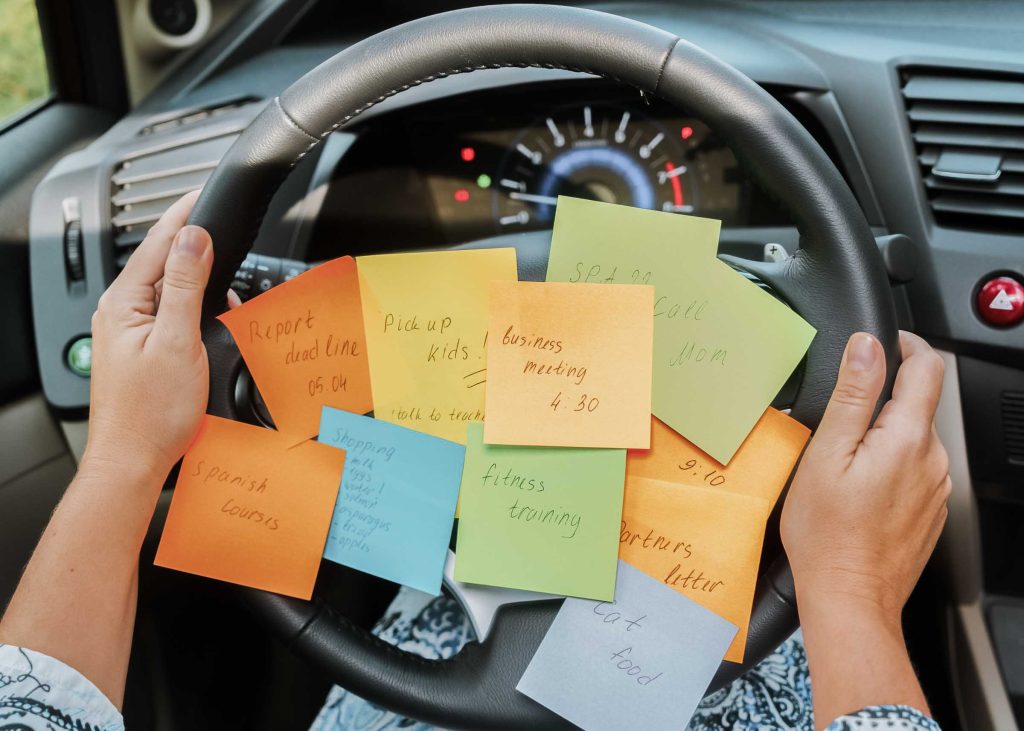 SPA ??
Call
Mom
Report
deadline
05.04
Pick up
kids!
talk to teach
business
meeting
4:30
9:10
Spanish
courses
Shopping
- milk
- eggs
- water!
- asparagus
- bread
- apples
fitness
training
Partners
letter
Cat
food